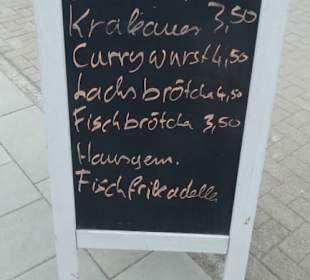 Krakauer 3,50
Currywurst 4,50
Lachsbrötche 4,50
Fischbrötche 3,50
Hausgem.
Fischfrikadelle